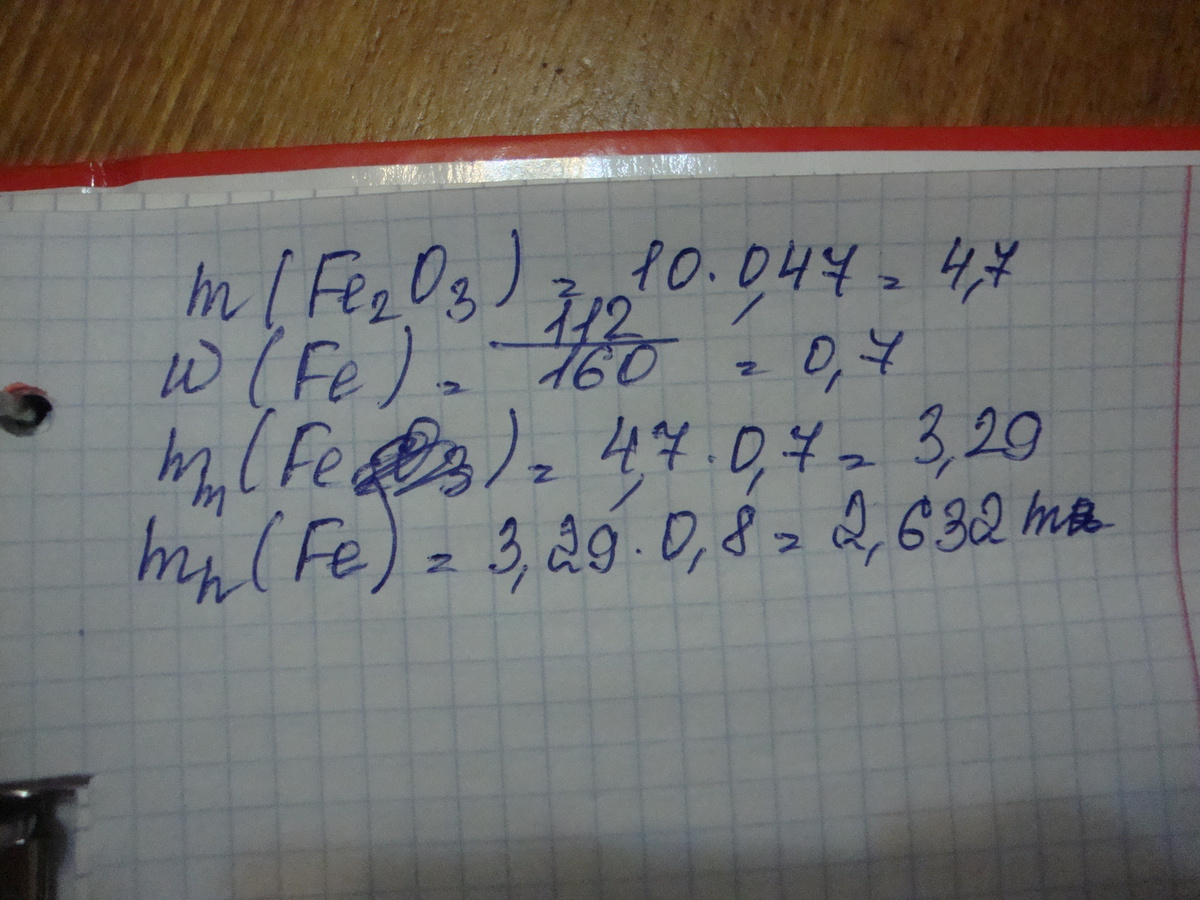 m(Fe₂O₃) = 10·0,47 = 4,7
w(Fe) = 112/160 = 0,7
mm(Fe) = 4,7·0,7 = 3,29
mn(Fe) = 3,29·0,8 = 2,632 т